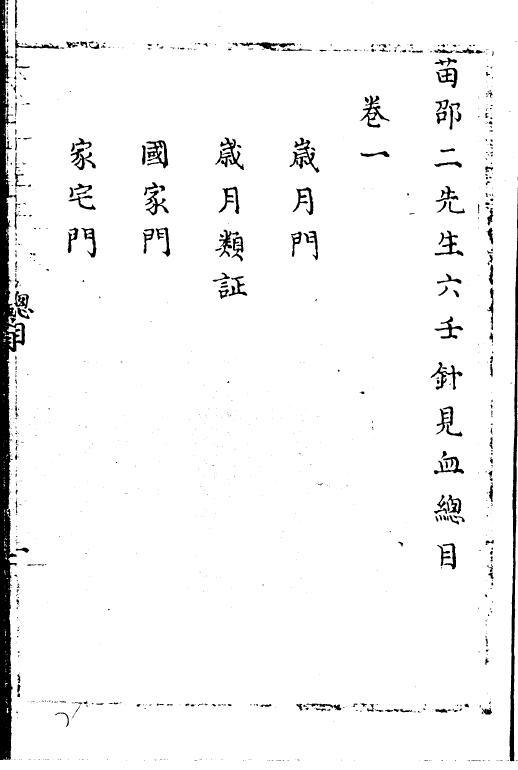 苗邵二先生六壬針見血總目
卷一
歲月門
歲月類証
國家門
家宅門
總目
一